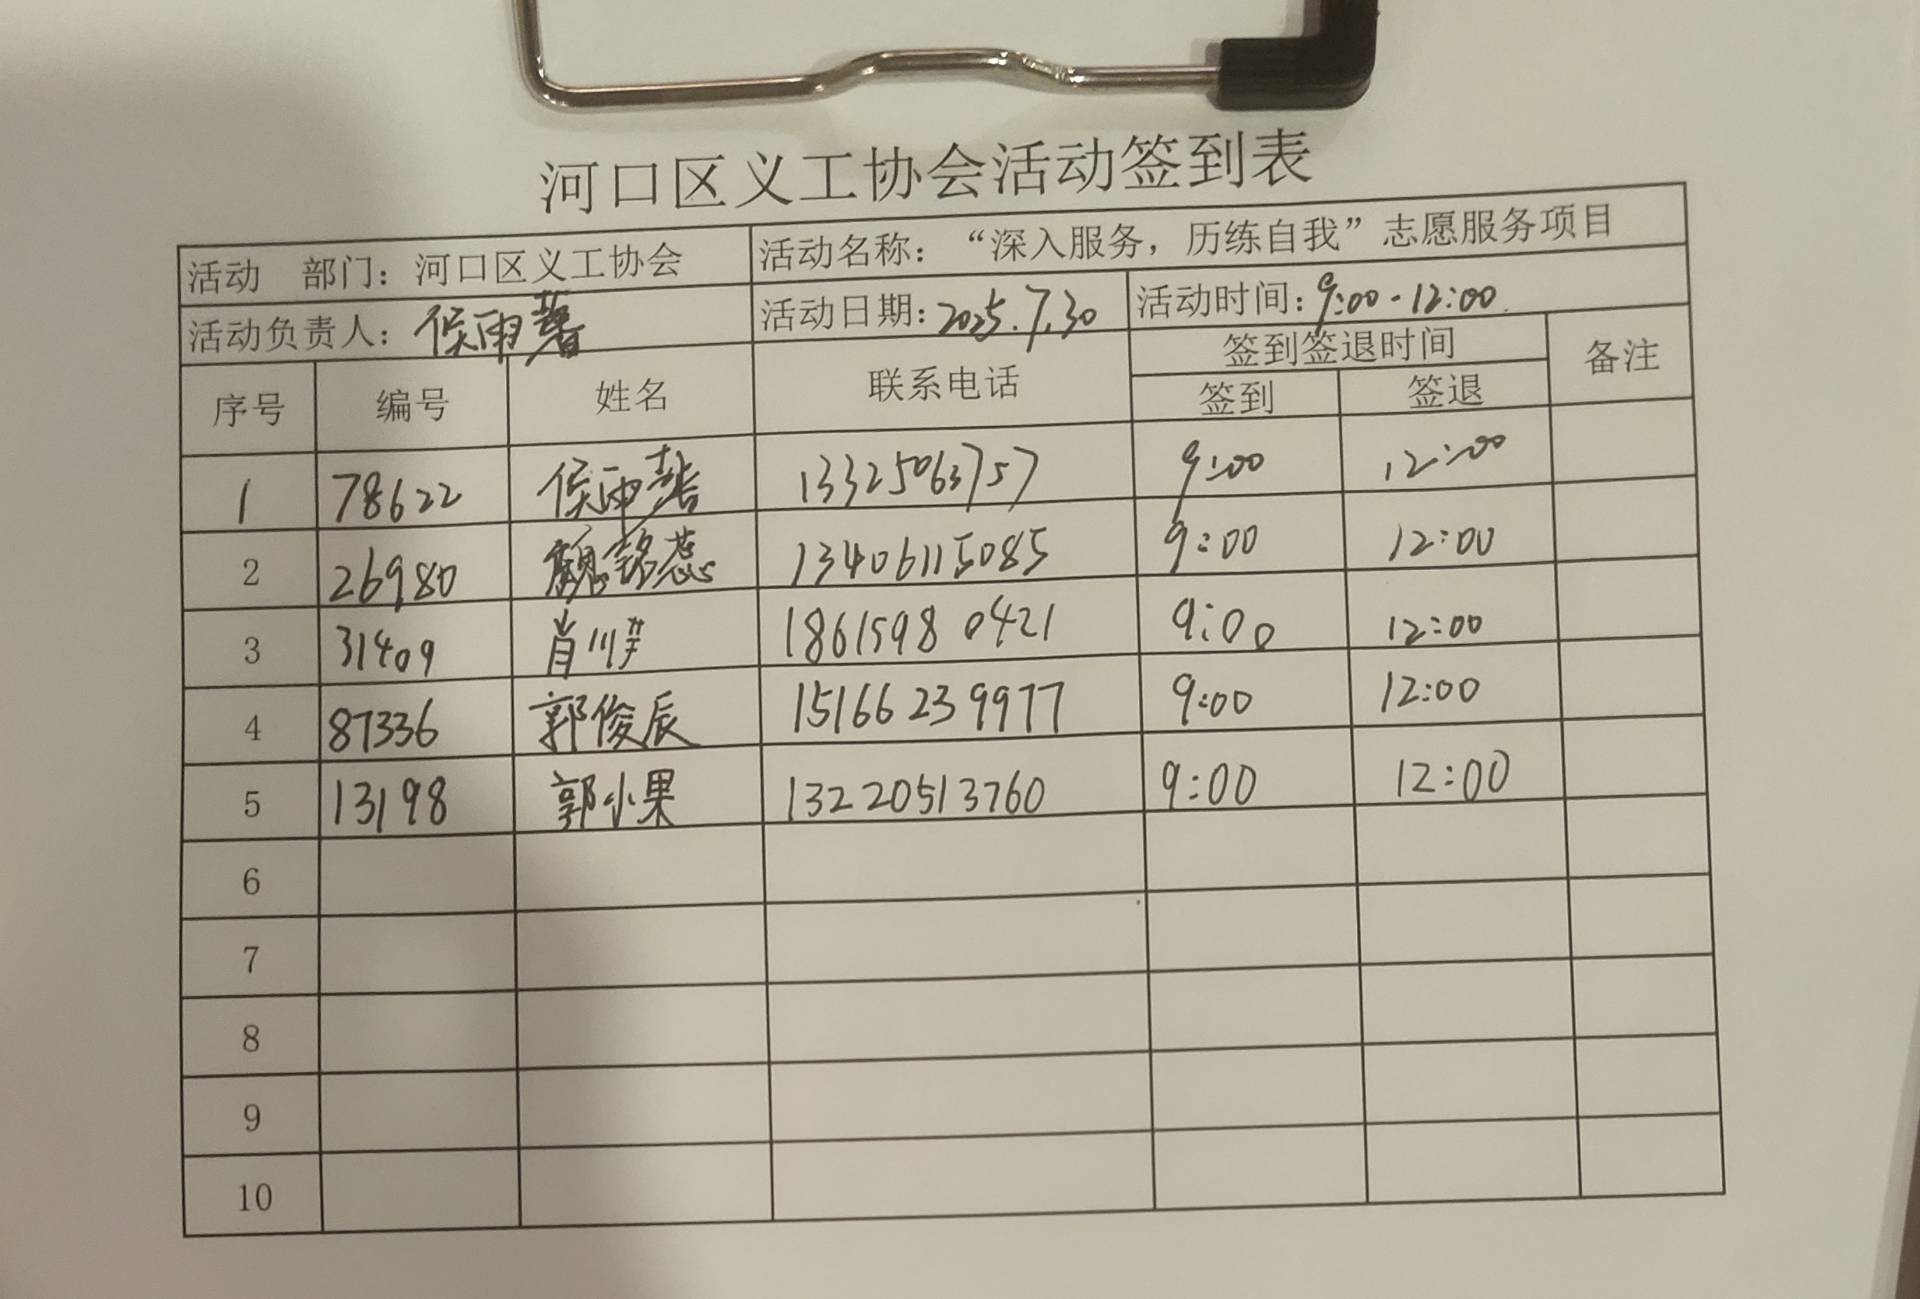 河口区义工协会活动签到表
活动 部门：河口区义工协会 活动名称：“深入服务，历练自我”志愿服务项目
活动负责人：侯雨馨 活动日期：2025.7.30 活动时间：9:00-12:00
序号 编号 姓名 联系电话 签到签退时间 备注
签到 签退
1 78622 侯雨 13325063757 9:00 12:00
2 26980 魏铭蕊 13406115085 9:00 12:00
3 31409 肖 18615980421 9:00 12:00
4 87336 郭俊辰 15166239977 9:00 12:00
5 13198 郭小果 13220513760 9:00 12:00
6
7
8
9
10